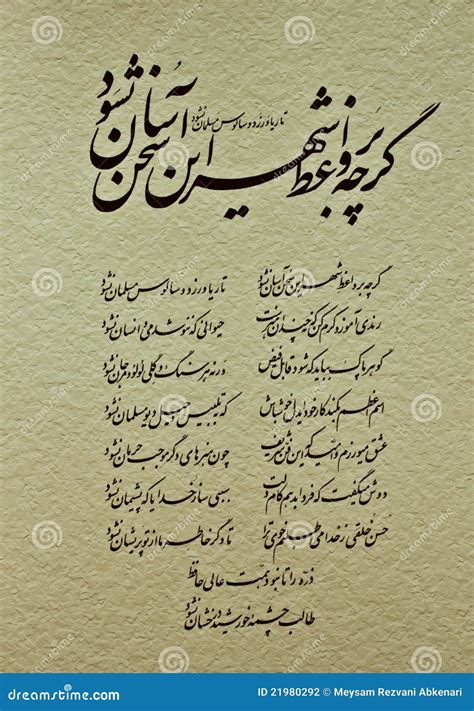 گرچه بر واعظ شهر این سخن آسان نشود
تا ریا ورزد و سالوس مسلمان نشود
گرچه بر واعظ شهر این سخن آسان نشود تا ریا ورزد و سالوس مسلمان نشود
رندی آموز و کرم کن که نه چندان هنرست حیوانی که ننوشد می و انسان نشود
گوهر پاک بباید که شود قابل فیض ورنه هر سنگ و گلی لولو و مرجان نشود
اسم اعظم بکند کار خود ای دل خوش باش که به تلبیس و حیل دیو مسلمان نشود
عشق میورزم و امید که این فن شریف چون هنرهای دگر موجب حرمان نشود
دوش میگفت که فردا بدهم کام دلت سببی ساز خدایا که پشیمان نشود
حسن خلقی ز خدا می طلبم خوی ترا تا دگر خاطر ما از تو پریشان نشود
ذره را تا نبود همت عالی حافظ
طالب چشمه خورشید درخشان نشود
dreamstime.com ID 21980292 © Meysam Rezvani Abkenari